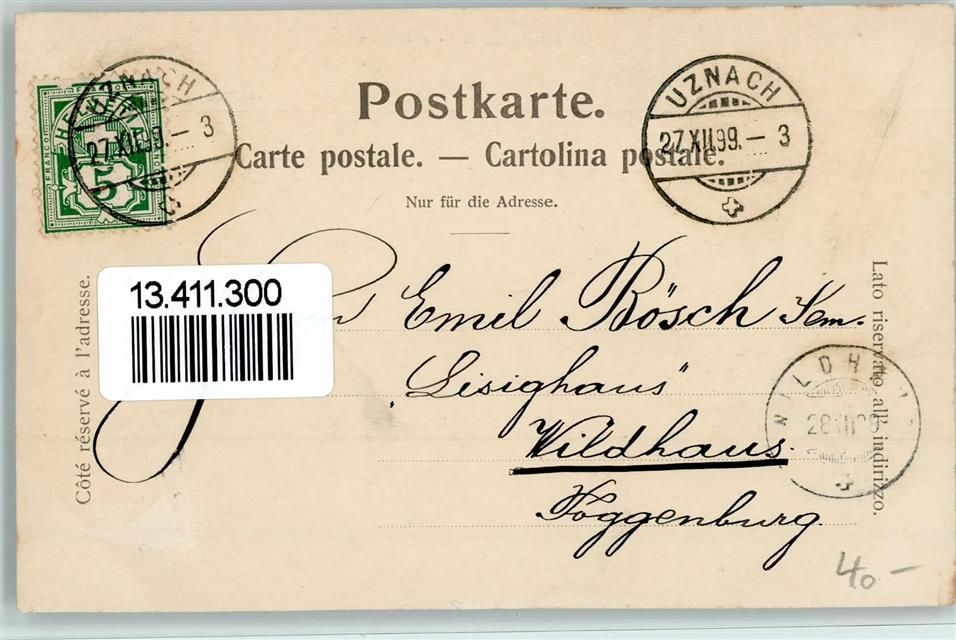 Postkarte.
Carte postale. — Cartolina postale.
Nur für die Adresse.
UZNACH
27.XII.99.–3
UZNACH
27.XII.99.–3
FRANCO
HELVETIA
5
13.411.300
Côté réservé à l'adresse.
Lato riservato all' indirizzo.
Emil Bösch Sem.
"Lisighaus"
Wildhaus.
Toggenburg.
WILDHAUS
28.XII.99
40 –